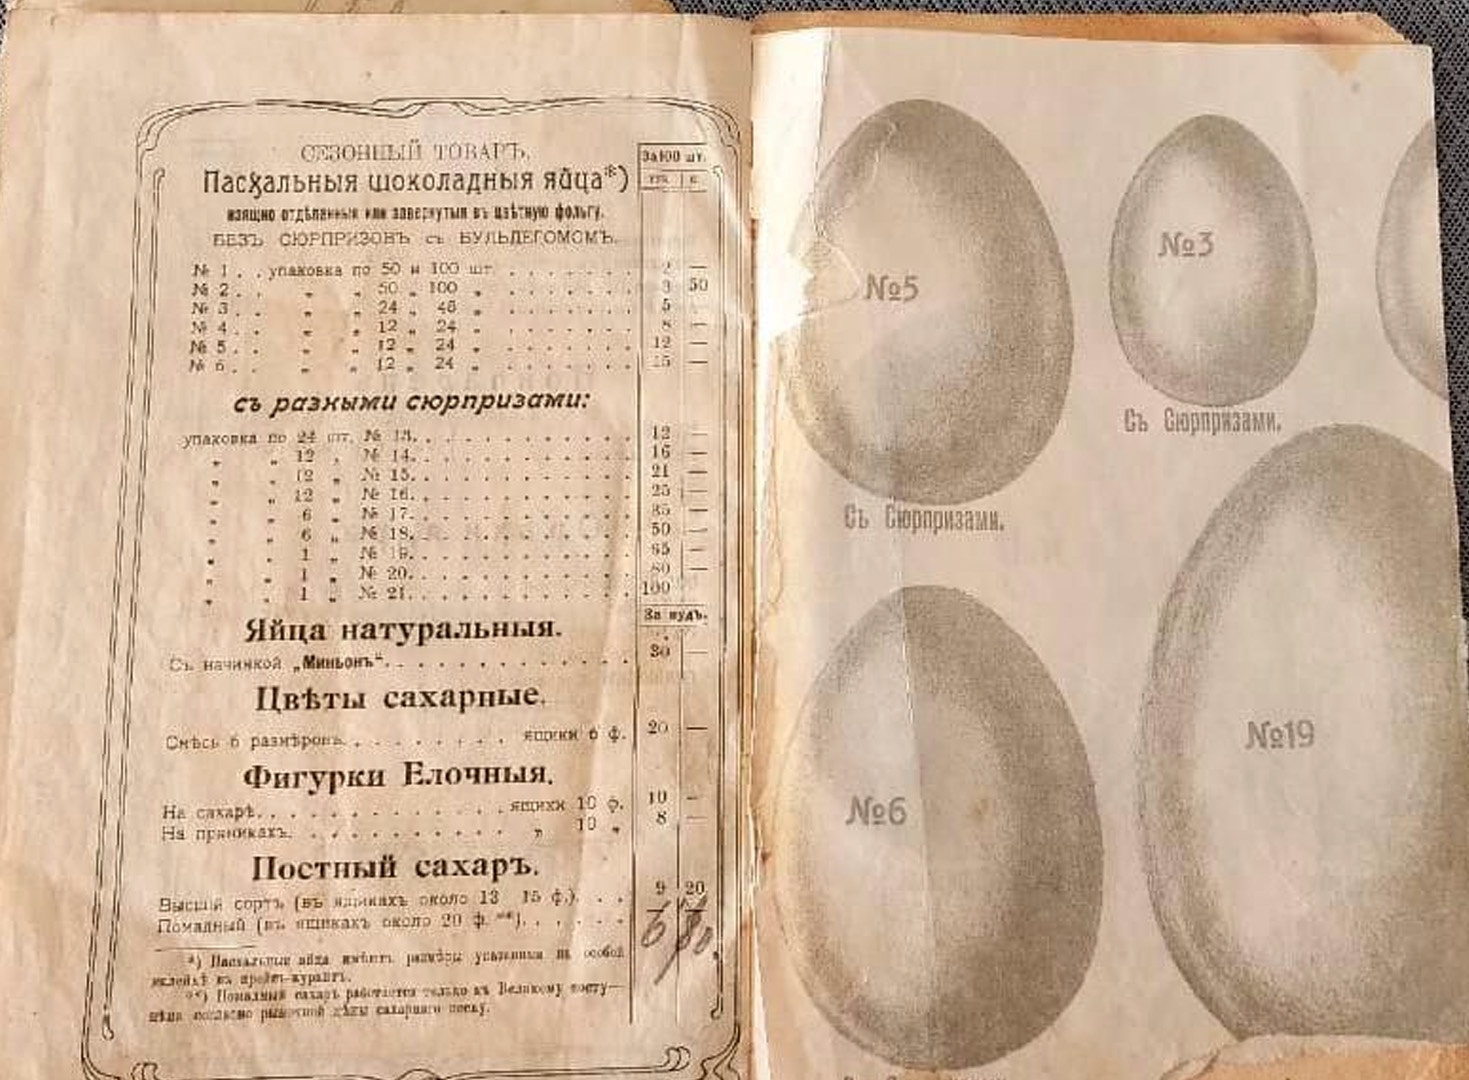 СЕЗОННЫЙ ТОВАРЪ.
За 100 шт.
Пасхальныя шоколадныя яйца*)
изящно отдѣланныя или завернутыя въ цвѣтную фольгу.
БЕЗЪ СЮРПРИЗОВЪ съ БУЛЬДЕГОМОМЪ.
№ 1 . . упаковка по 50 и 100 шт. . . . . . . . 2 —
№ 2 . . „ „ 50 „ 100 „ . . . . . . . 3 50
№ 3 . . „ „ 24 „ 48 „ . . . . . . . 5 —
№ 4 . . „ „ 12 „ 24 „ . . . . . . . 8 —
№ 5 . . „ „ 12 „ 24 „ . . . . . . . 12 —
№ 6 . . „ „ 12 „ 24 „ . . . . . . . 15 —
съ разными сюрпризами:
упаковка по 24 шт. № 13. . . . . . . . . . . . 12 —
„ „ 12 „ № 14. . . . . . . . . . . . 16 —
„ „ 12 „ № 15. . . . . . . . . . . . 21 —
„ „ 12 „ № 16. . . . . . . . . . . . 25 —
„ „ 6 „ № 17. . . . . . . . . . . . 35 —
„ „ 6 „ № 18. . . . . . . . . . . . 50 —
„ „ 1 „ № 19. . . . . . . . . . . . 65 —
„ „ 1 „ № 20. . . . . . . . . . . . 80 —
„ „ 1 „ № 21. . . . . . . . . . . . 100
За пудъ.
Яйца натуральныя.
Съ начинкой „Миньонъ“. . . . . . . . . . . . . 30 —
Цвѣты сахарные.
Смѣсь 6 размѣровъ. . . . . . . . . ящики 6 ф. 20 —
Фигурки Елочныя.
На сахарѣ. . . . . . . . . . . . . ящики 10 ф. 10 —
На пряникахъ. . . . . . . . . . . „ 10 „ 8 —
Постный сахаръ.
Высшій сортъ (въ ящикахъ около 13 15 ф.). . . 9 20
Помадный (въ ящикахъ около 20 ф. **). . . . . . 6
*) Пасхальныя яйца имѣютъ размѣры указанныя на особой
вклейкѣ въ прейсъ-курантъ.
**) Помадный сахаръ работается только къ Великому посту—
цѣна согласно рыночной цѣны сахарнаго песку.
№5
Съ Сюрпризами.
№3
Съ Сюрпризами.
№6
№19